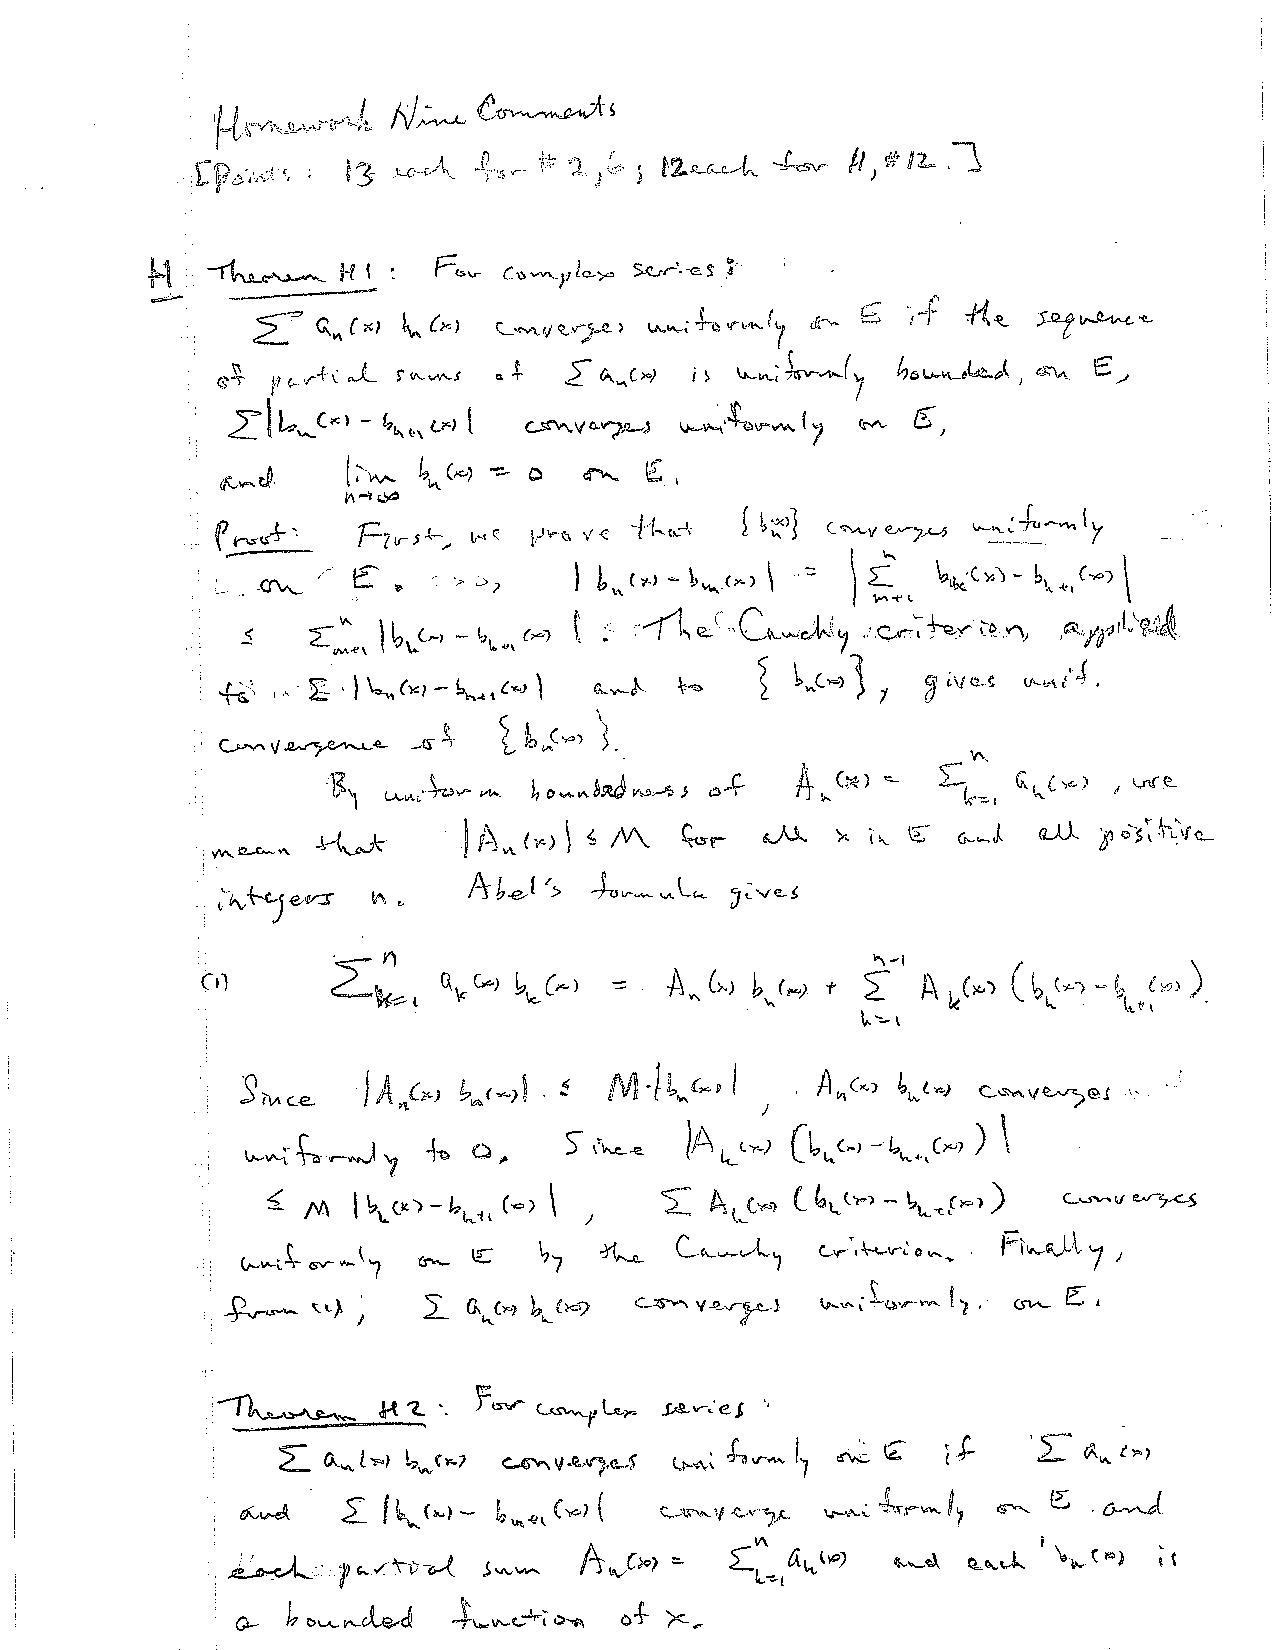 Homework Nine Comments
[Points: 13 each for #2,6; 12 each for H, #12.]
H Theorem H1: For complex series:
∑ a_n(x) b_n(x) converges uniformly on E if the sequence
of partial sums of ∑ a_n(x) is uniformly bounded, on E,
∑|b_n(x) - b_{n+1}(x)| converges uniformly on E,
and lim_{n→∞} b_n(x) = 0 on E.
Proof: First, we prove that {b_n(x)} converges uniformly
on E. |b_n(x) - b_m(x)| = |∑_{m+1}^n b_k(x) - b_{k+1}(x)|
≤ ∑_{m+1}^n |b_k(x) - b_{k+1}(x)|. The Cauchy criterion, applied
to ∑ |b_n(x) - b_{n+1}(x)| and to {b_n(x)}, gives unif.
convergence of {b_n(x)}.
By uniform boundedness of A_n(x) = ∑_{k=1}^n a_k(x), we
mean that |A_n(x)| ≤ M for all x in E and all positive
integers n. Abel's formula gives
(1) ∑_{k=1}^n a_k(x) b_k(x) = A_n(x) b_n(x) + ∑_{k=1}^{n-1} A_k(x) (b_k(x) - b_{k+1}(x)).
Since |A_n(x) b_n(x)| ≤ M·|b_n(x)|, A_n(x) b_n(x) converges
uniformly to 0. Since |A_k(x) (b_k(x) - b_{k+1}(x))|
≤ M |b_k(x) - b_{k+1}(x)|, ∑ A_k(x) (b_k(x) - b_{k+1}(x)) converges
uniformly on E by the Cauchy criterion. Finally,
from (1), ∑ a_k(x) b_k(x) converges uniformly on E.
Theorem H2: For complex series:
∑ a_n(x) b_n(x) converges uniformly on E if ∑ a_n(x)
and ∑ |b_n(x) - b_{n+1}(x)| converge uniformly on E and
each partial sum A_n(x) = ∑_{k=1}^n a_k(x) and each b_n(x) is
a bounded function of x.